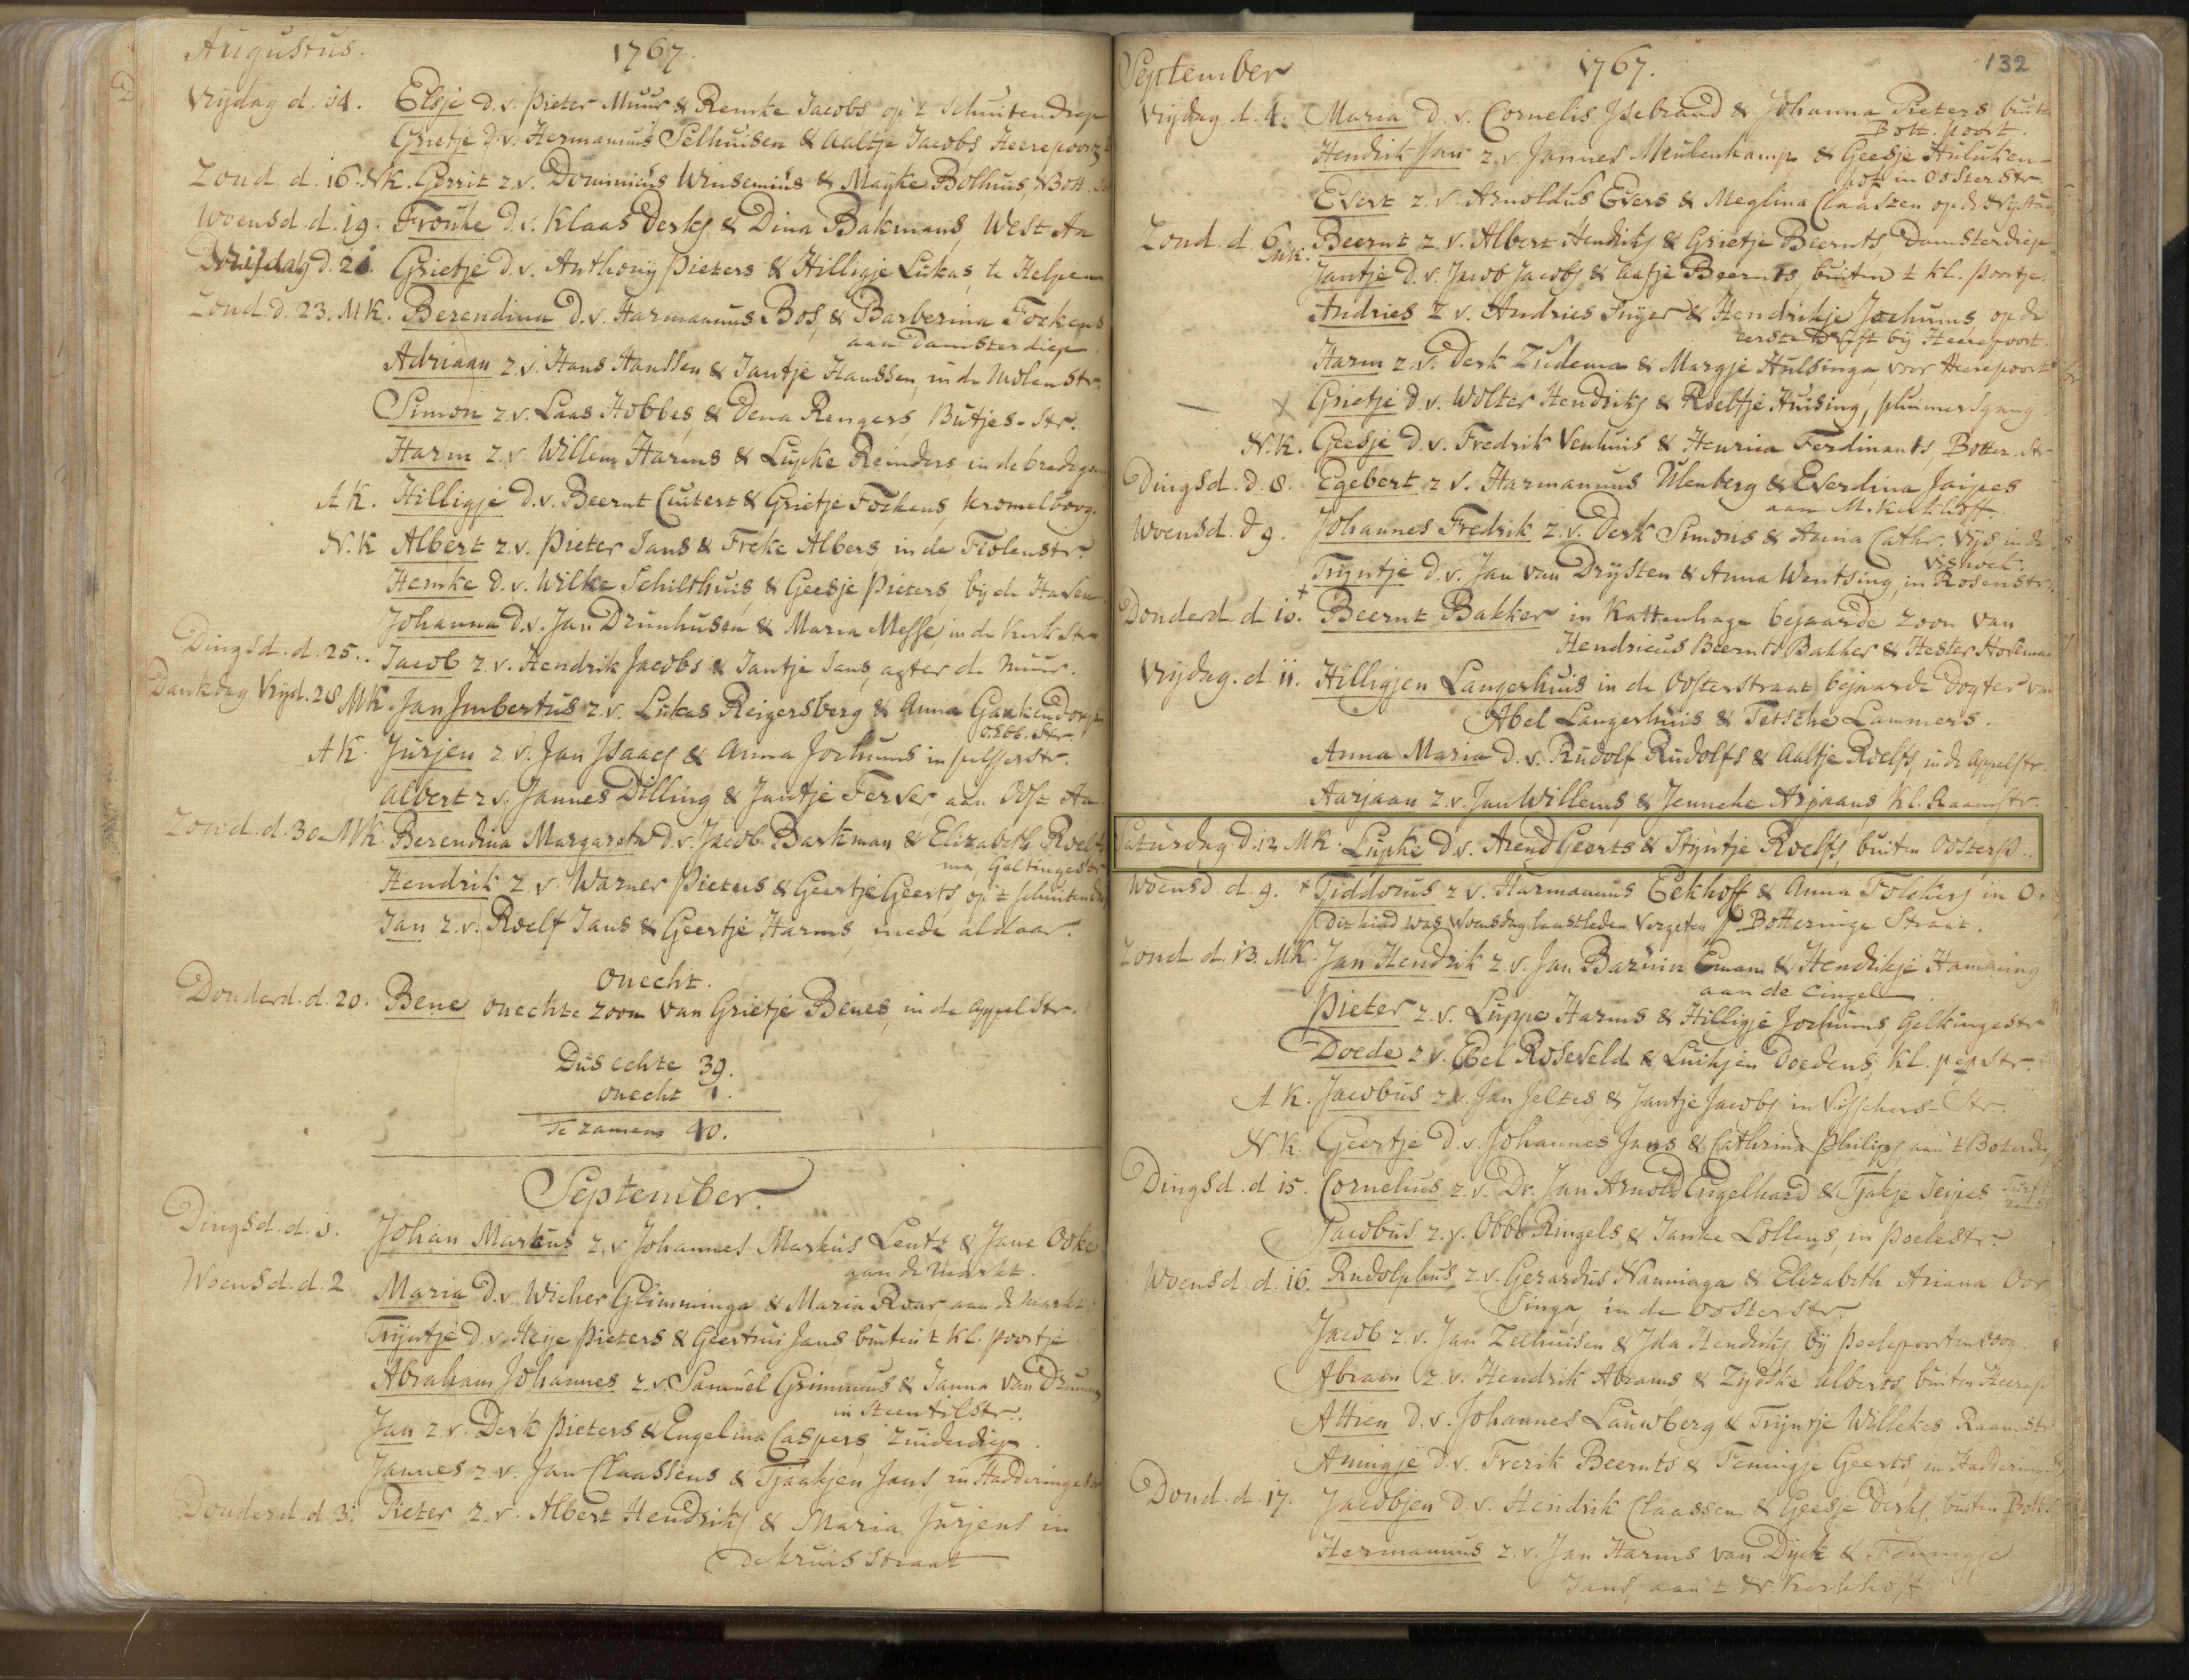 Augustus. 1767.
Vrydag d. 14. Elsje D. v. Pieter Muur & Remke Jacobs op 't Schuitendiep
Grietje D. v. Hermannus Selhuisen & Aaltje Jacobs Heerepoort
Zond. d. 16. N.K. Gerrit z. v. Dominicus Winsemius & Mayke Bolhuis, N Bott.
Woensd. d. 19. Frouke D. v. Klaas Derks & Dina Bakmans, West Aa
Vrijdag d. 21. Grietje D. v. Anthony Pieters & Hilligje Lukas, te Helpen
Zond. d. 23. MK. Berendina D. v. Harmannus Bos, & Barberina Fockens
aan Damsterdiep.
Adriaan z. v. Hans Hanssen & Jantje Hanssen, in de Molenstr.
Simon z. v. Laas Hobbes, & Dena Rengers, Butjes-Str.
Harm z. v. Willem Harms & Lupke Reinders, in de bredegang
AK. Hilligje D. v. Beernt Cuitert & Grietje Fockens, kromelboog.
N.K Albert z. v. Pieter Jans & Freke Albers in de Fiolenstr.
Hemke D. v. Wilke Schilthuis, & Geesje Pieters, by de Haven
Johanna D. v. Jan Drunhusen & Maria Messe, in de kerkstr
Dingsd. d. 25. Jacob z. v. Hendrik Jacobs & Jantje Jans, agter de muur.
Dankdag Vryd. 28 MK. Jan Imbertus z. v. Lukas Reigersberg & Anna Gankendorp
O. Ebb. Str
AK. Jurjen z. v. Jan Isaacs & Anna Jochums in pelsserstr.
Albert z v. Jannes Dilling & Jantje Ferver, aan Oost Aa
Zond. d. 30. MK. Berendina Margareta D. v. Jacob Barkman & Elizabeth Roelf
ma, Geltingestr
Hendrik z. v. Warner Pieters & Geertje Geerts, op 't schuitendiep
Jan z. v. Roelf Jans & Geertje Harms, mede aldaar.
Onecht.
Donderd. d. 20. Bene onechte zoon van Grietje Benes, in de appelstr.
Dus echte 39.
onecht 1.
Te zamen 40.
September.
Dingsd. d. 1. Johan Markus z. v Johannes Markus Lentz & Jane Ooke
aan de Markt.
Woensd. d. 2. Maria D. v. Wicher Glimminga & Maria Roar, aan de markt.
Trijntje D. v. Heije Pieters & Geertrui Jans buiten 't kl. poortje
Abraham Johannes z. v. Samuel Grimmius & Janna van Drunen
in Steentilstr.
Jan z. v. Derk Pieters & Engelina Caspers, Zuiderdiep.
Jannes z v. Jan Claassens & Tjaakjen Jans in Hadderingestr
Donderd. d. 3. Pieter z. v. Albert Hendriks & Maria Jurjens in
de kruis Straat
September 1767. 132
Vrydag d. 4. Maria D. v. Cornelis Isebrand & Johanna Pieters buiten
Bott. poort.
Hendrik Jan z. v. Jannes Meulenkamp & Geesje Huluken-
pot in Oosterstr.
Evert z. v. Arnoldus Evers & Meglina Claaszen op de
Zond. d. 6. MK. Beernt z. v. Albert Hendriks & Grietje Beernts, Damsterdiep
Jantje D. v. Jacob Jacobs & Aafje Beernts, buiten 't kl. poortje.
Andries z v. Andries Inyer & Hendrikje Jochums, op de
eerste Drift by Heerepoort.
Harm z. v. Derk Zudema & Margje Hulsinga, voor Heerepoort
Grietje D. v. Wolter Hendriks & Roelfje Huising, pluimersgang.
N.K. Geesje D. v. Fredrik Venhuis & Henrica Ferdinants, Botter. Str
Dingsd. d. 8. Egebert z. v. Harmannus Ulenberg & Everdina Jaipes
aan M. kerkhoff.
Woensd. d 9. Johannes Fredrik z. v. Derk Simons & Anna Cathr. Vijs in de
vishoek.
Trijntje D. v. Jan van Drysten & Anna Wentsing, in Rosenstr.
Donderd. d. 10. + Beernt Bakker in Kattenhage bejaarde zoon van
Hendricus Beernts Bakker & Hester Horeman
Vrydag. d. 11. Hilligjen Langerhuis in de Oosterstraat bejaarde Dogter van
Abel Langerhuis & Tetsche Lammers.
Anna Maria D. v. Rudolf Rudolfs & Aaltje Roelfs, in de Appelstr.
Aarjaan z. v. Jan Willems, & Jenneke Arjaans, kl. Raamstr.
Saturdag D. 12 MK. Lupke D. v. Arend Geerts & Stijntje Roelfs, buiten Oosterp.
Woensd. d. 9. + Tiddorus z v. Harmannus Eekhoff & Anna Folckers in O.
Dit kind was Woensdag laastleden vergeten Botteringe Straat.
Zond. d. 13. MK. Jan Hendrik z. v. Jan Barnin Eman & Hendrikje Hamming
aan de Cingel.
Pieter z. v. Luppe Harms & Hilligje Jochums, Gelkingestr
Doede z v. Ebel Roseveld & Luitjen Doedens, kl. pepstr.
AK. Jacobus z v. Jan Jeltes & Jantje Jacobs in Visschers-Str.
N.K. Geertje D. v. Johannes Jans & Cathrina Philips, aan 't Boterdiep
Dingsd. d 15. Cornelius z. v. Dr. Jan Arnold Engelhard & Tjakje Jeipes
Jacobus z. v. Obbo Ringels & Janke Lollens, in Poelestr.
Woensd. d. 16. Rudolphus z. v. Gerardus Nanninga & Elizabeth Ariana Oor
singa, in de Oosterstr
Jacob z. v. Jan Zelhuisen & Ida Hendriks by Poelepoortenboog
Abram z. v. Hendrik Abrams & Zydske Alberts, buiten Heerep
Attien D. v. Johannes Lauwberg & Trijntje Willekes Raamstr
Aningje D. v. Frerik Beernts & Feningje Geerts in Hadderinge
Dond. d. 17. Jacobjen D. v. Hendrik Claassen & Geesje Derks, buiten Bott.
Hermannus z. v. Jan Harms van Dyck & Fenningje
Jans, aan 't N. kerkhof